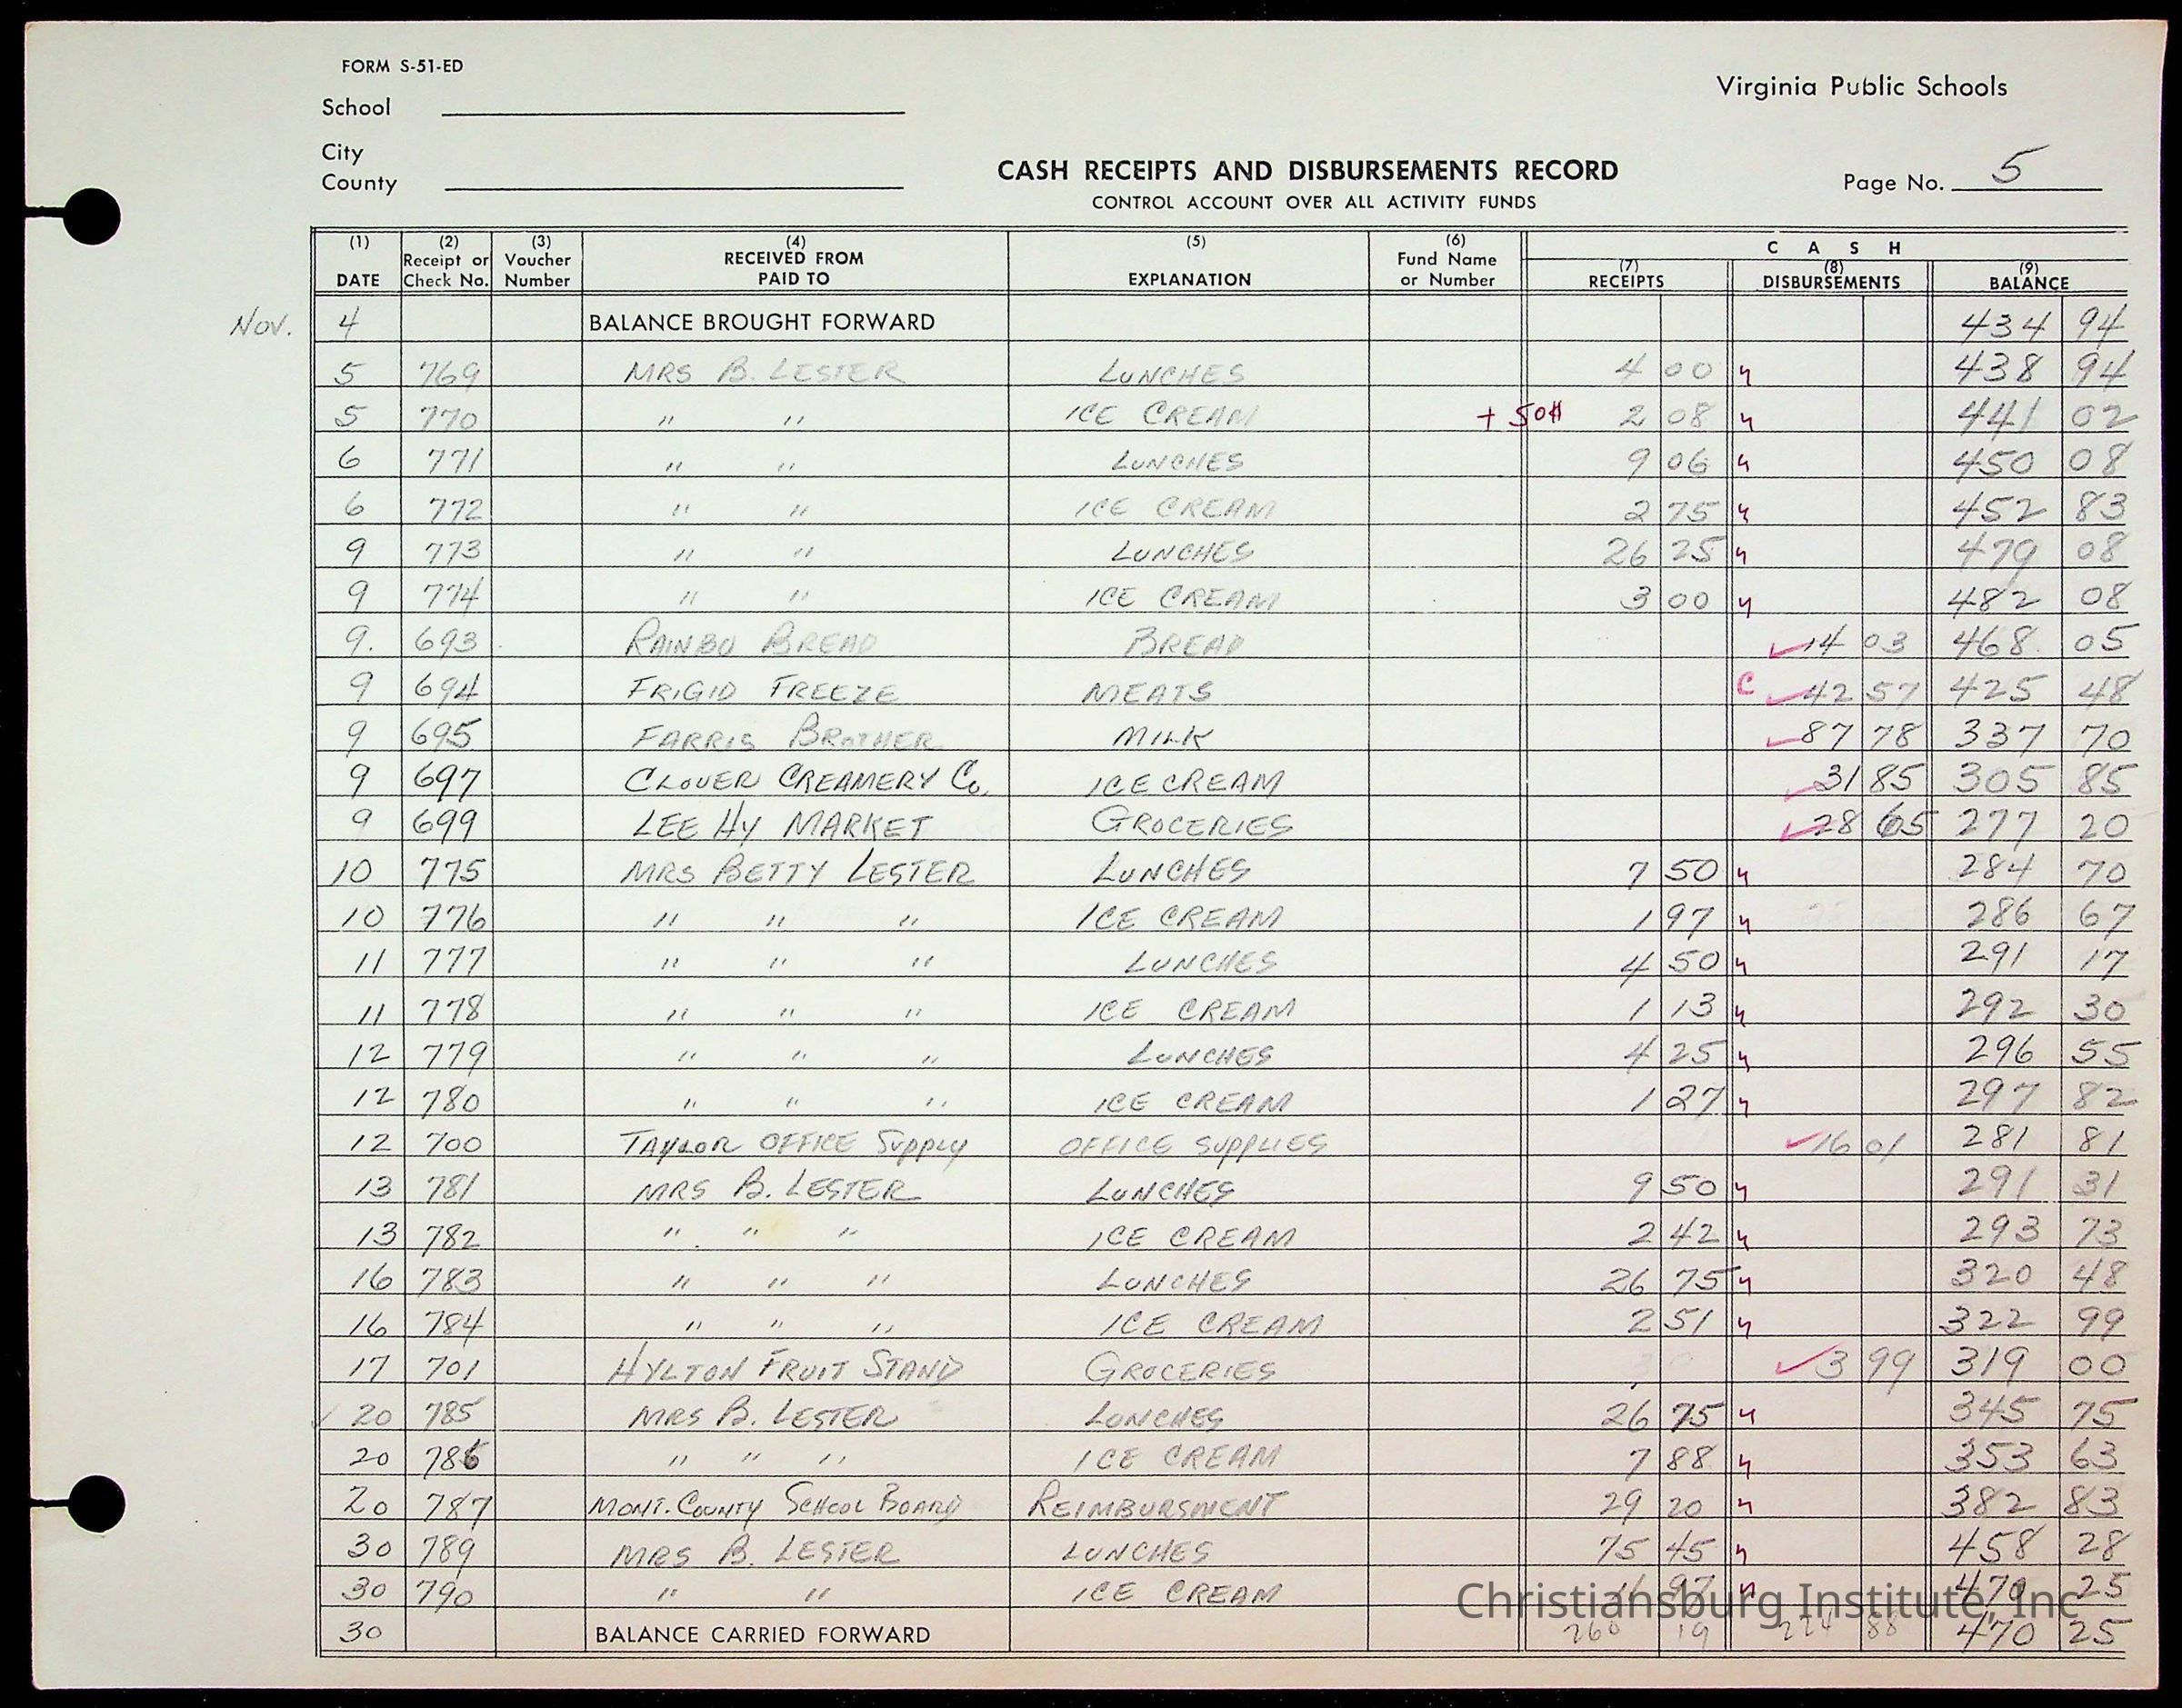 FORM S-51-ED
Virginia Public Schools
School
City
County
CASH RECEIPTS AND DISBURSEMENTS RECORD
CONTROL ACCOUNT OVER ALL ACTIVITY FUNDS
Page No. 5
(1) DATE (2) Receipt or Check No. (3) Voucher Number (4) RECEIVED FROM PAID TO (5) EXPLANATION (6) Fund Name or Number CASH (7) RECEIPTS (8) DISBURSEMENTS (9) BALANCE
Nov. 4 BALANCE BROUGHT FORWARD 434 94
5 769 MRS B. LESTER LUNCHES 4 00 438 94
5 770 " " ICE CREAM + 50¢ 2 08 441 02
6 771 " " LUNCHES 9 06 450 08
6 772 " " ICE CREAM 2 75 452 83
9 773 " " LUNCHES 26 25 479 08
9 774 " " ICE CREAM 3 00 482 08
9. 693 RAINBO BREAD BREAD ✓14 03 468 05
9 694 FRIGID FREEZE MEATS C ✓42 57 425 48
9 695 FARRIS BROTHER MILK ✓87 78 337 70
9 697 CLOVER CREAMERY Co. ICE CREAM ✓31 85 305 85
9 699 LEE HY MARKET GROCERIES ✓28 65 277 20
10 775 MRS BETTY LESTER LUNCHES 7 50 284 70
10 776 " " " ICE CREAM 1 97 286 67
11 777 " " " LUNCHES 4 50 291 17
11 778 " " " ICE CREAM 1 13 292 30
12 779 " " " LUNCHES 4 25 296 55
12 780 " " " ICE CREAM 1 27 297 82
12 700 TAYLOR OFFICE Supply OFFICE SUPPLIES ✓16 01 281 81
13 781 MRS B. LESTER LUNCHES 9 50 291 31
13 782 " " " ICE CREAM 2 42 293 73
16 783 " " " LUNCHES 26 75 320 48
16 784 " " " ICE CREAM 2 51 322 99
17 701 HYLTON FRUIT STAND GROCERIES ✓3 99 319 00
✓ 20 785 MRS B. LESTER LUNCHES 26 75 345 75
20 786 " " " ICE CREAM 7 88 353 63
20 787 MONT. COUNTY SCHOOL BOARD REIMBURSMENT 29 20 382 83
30 789 MRS B. LESTER LUNCHES 75 45 458 28
30 790 " " ICE CREAM 11 97 470 25
30 BALANCE CARRIED FORWARD 260 19 224 88 470 25
Christiansburg Institute, Inc